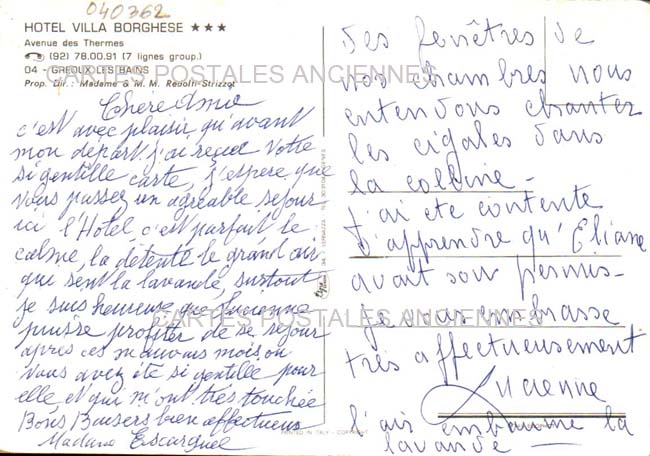 040362
HOTEL VILLA BORGHESE ★★★
Avenue des Thermes
☎ (92) 78.00.91 (7 lignes group.)
04 - GREOUX LES BAINS
Prop. Dir.: Madame & M. M. Redolfi-Strizzot
CARTES POSTALES ANCIENNES
Chere Amie
c'est avec plaisir qu'avant
mon départ j'ai reçue votre
si gentille carte, j'espere que
vous passez un agréable sejour
ici l'Hotel c'est parfait le
calme, la détente le grand air
qui sent la lavande, surtout
je suis heureuse que Lucienne
puisse profiter de se sejour
après ces mauvais mois, ou
vous avez été si gentille pour
elle et qui m'ont très touchée
Bons Baisers bien affectueux
Madame Escarguel
PRINTED IN ITALY - COPYRIGHT
Des fenêtres de
nos chambres nous
entendons chanter
les cigales dans
la colline -
J'ai été contente
d'apprendre qu'Eliane
avait son permis -
Je vous embrasse
très affectueusement
Lucienne
l'air embaume la
lavande
CARTES POSTALES ANCIENNES